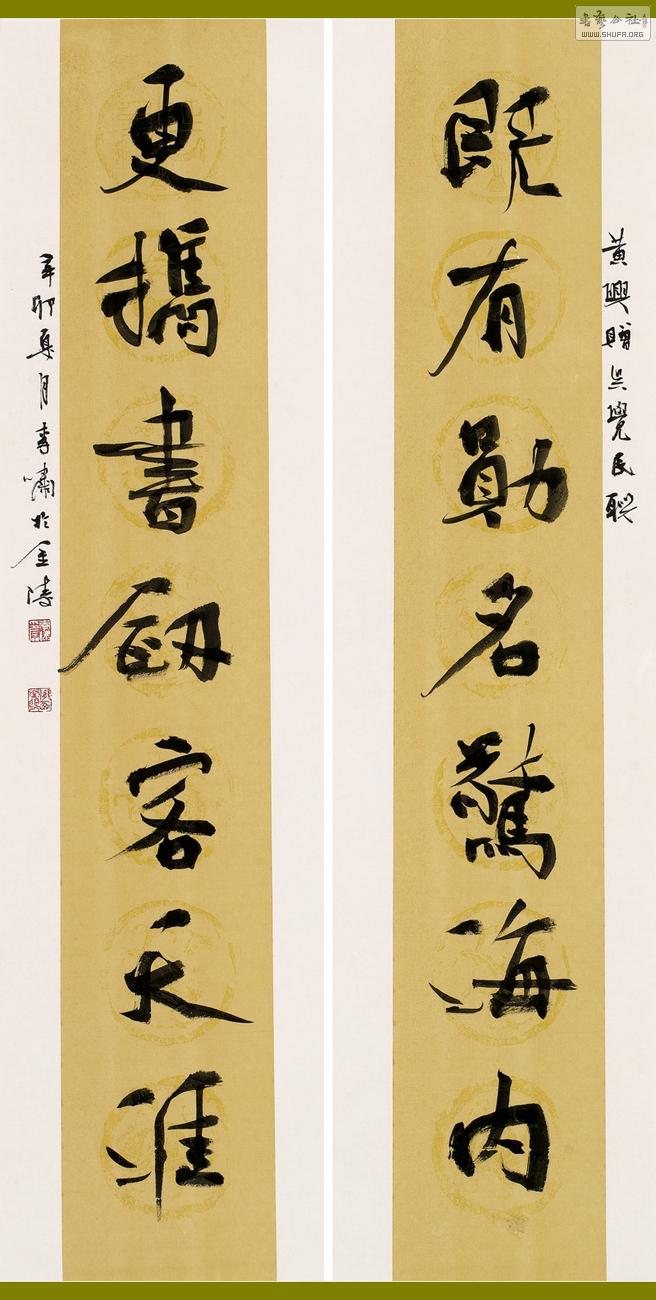 書藝公社
WWW.SHUFA.ORG
黄興贈吴覺民聯
既有勛名驚海内
更攜書劒客天涯
辛卯夏月李嘯於金陵